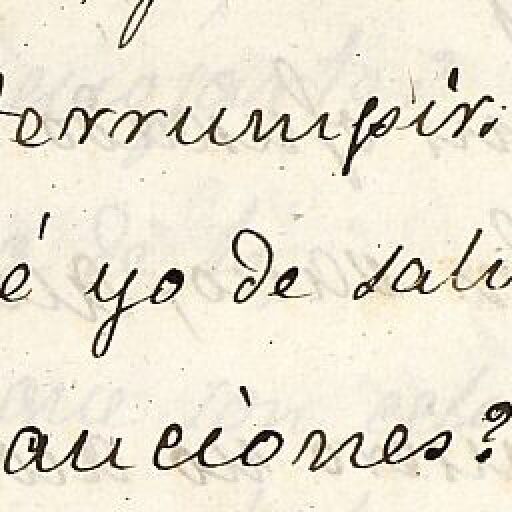 terrumpir.
é yo de sali
auciones?